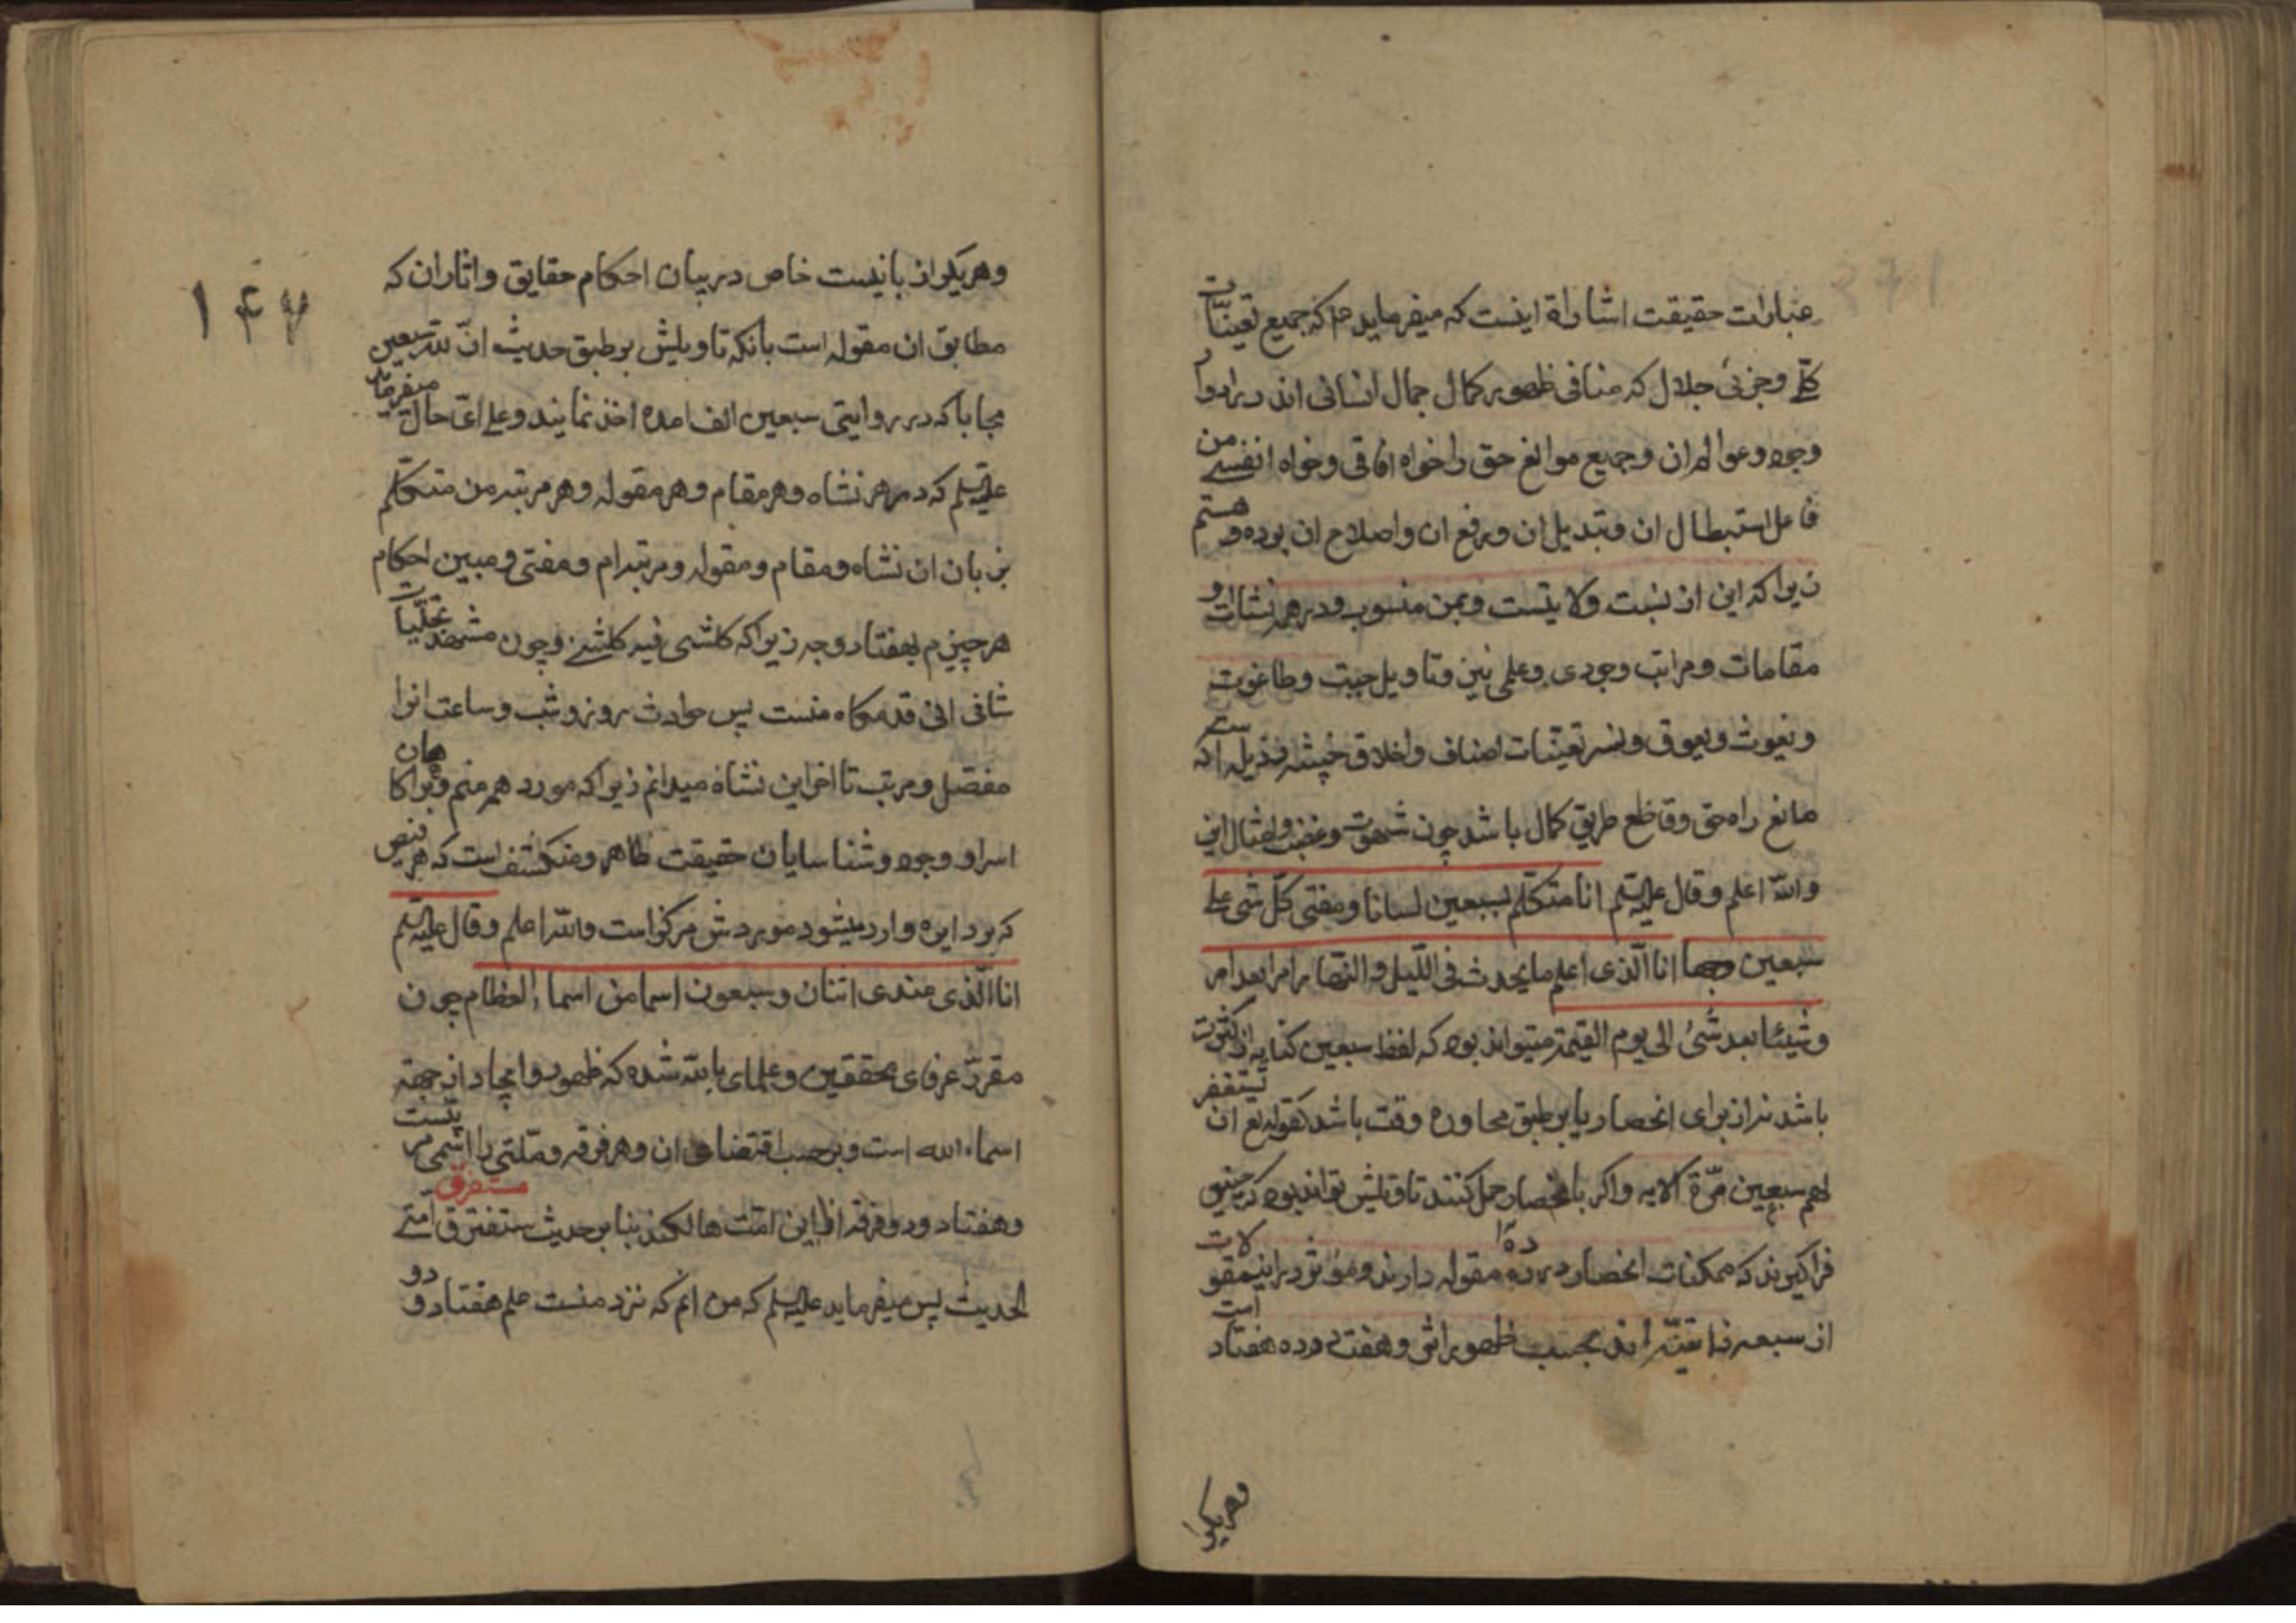 عبارات حقیقت اشاراة اینست که میفرماید مراکه جمیع تعینات
کلے وجزئی جلال که منافی ظهور کمال جمال انسانی اند در ادوار
وجود وعوالم ان وجمیع موانع حق را خواه افاقی وخواه انفسے من
فاعل استبطال ان وتبدیل ان ورفع ان واصلاح ان بوده و هستم
زیرا که این از نسبت ولایتست وبمن منسوب ودر همه نشات و
مقامات ومراتب وجودی وعلمی بین وتاویل جبت وطاغوت
ویغوث ویعوق ونسر تعینات اصناف واخلاق خبیثه رذیله است که
مانع راه حق وقاطع طریق کمال باشد چون شهوت وغضب وامثال این
والله اعلم وقال علیه السلم انا متکلم بسبعین لسانا ومفتی کل شی علے
سبعین وجها انا الذی اعلم مایحدث فی اللیل والنهار امرا بعد امر
وشیئا بعد شیٔ الی یوم القیمة میتواند بود که لفظ سبعین کنایه از کثرت
باشد نه از برای انحصار یا بر طبق محاوره وقت باشد کقوله تع ان تستغفر
لهم سبعین مرّة الایه واکر بانحصار حمل کنند تاویلش تواند بود که چنین
فراکیرند که ممکنات انحصار در ده مقوله دارند وموثر در این مقولات
از سبعه ذاتیّه اند بحسب ظهور اثر وهفت در ده هفتاد است
وهریکرا
۱۴۷
وهریکرا زبانیست خاص در بیان احکام حقایق واثار ان که
مطابق ان مقوله است بانکه تاویلش بر طبق حدیث انّ لله سبعین
حجابا که در روایتی سبعین الف امده اخذ نمایند وعلے ایّ حال میفرماید
علیه السلم که در هر نشاه وهر مقام وهر مقوله وهر مرتبه من متکلم
بزبان ان نشاه ومقام ومقوله ومرتبه ام ومفتی ومبین احکام
هر چیزم بهفتاد وجه زیرا که کلشی فیه کلشے وچون مشهد تجلیات
شانی انی قدمکاه منست پس حوادث روز وشب وساعت انرا
مفصل ومرتب تا اخر این نشاه میدانم زیرا که مورد همه منم وبر اکاهان
اسرار وجود وشناسایان حقیقت ظاهر ومنکشف است که هر فیض
که بر دایره وارد میشود موردش مرکز است والله اعلم وقال علیه السلم
انا الذی عندی اثنان وسبعون اسما من اسماء العظام چون
مقرر عرفای محققین وعلمای بالله شده که ظهور وایجاد از جهة
اسماء الله است وبر حسب اقتضای ان وهر فرقه وملتی را اسمی مربیست
وهفتاد ودو فرقه از این امّت هالکند بنا بر حدیث ستفترق امتے
ستفرق
الحدیث پس میفرماید علیه السلم که من انم که نزد منست علم هفتاد و دو